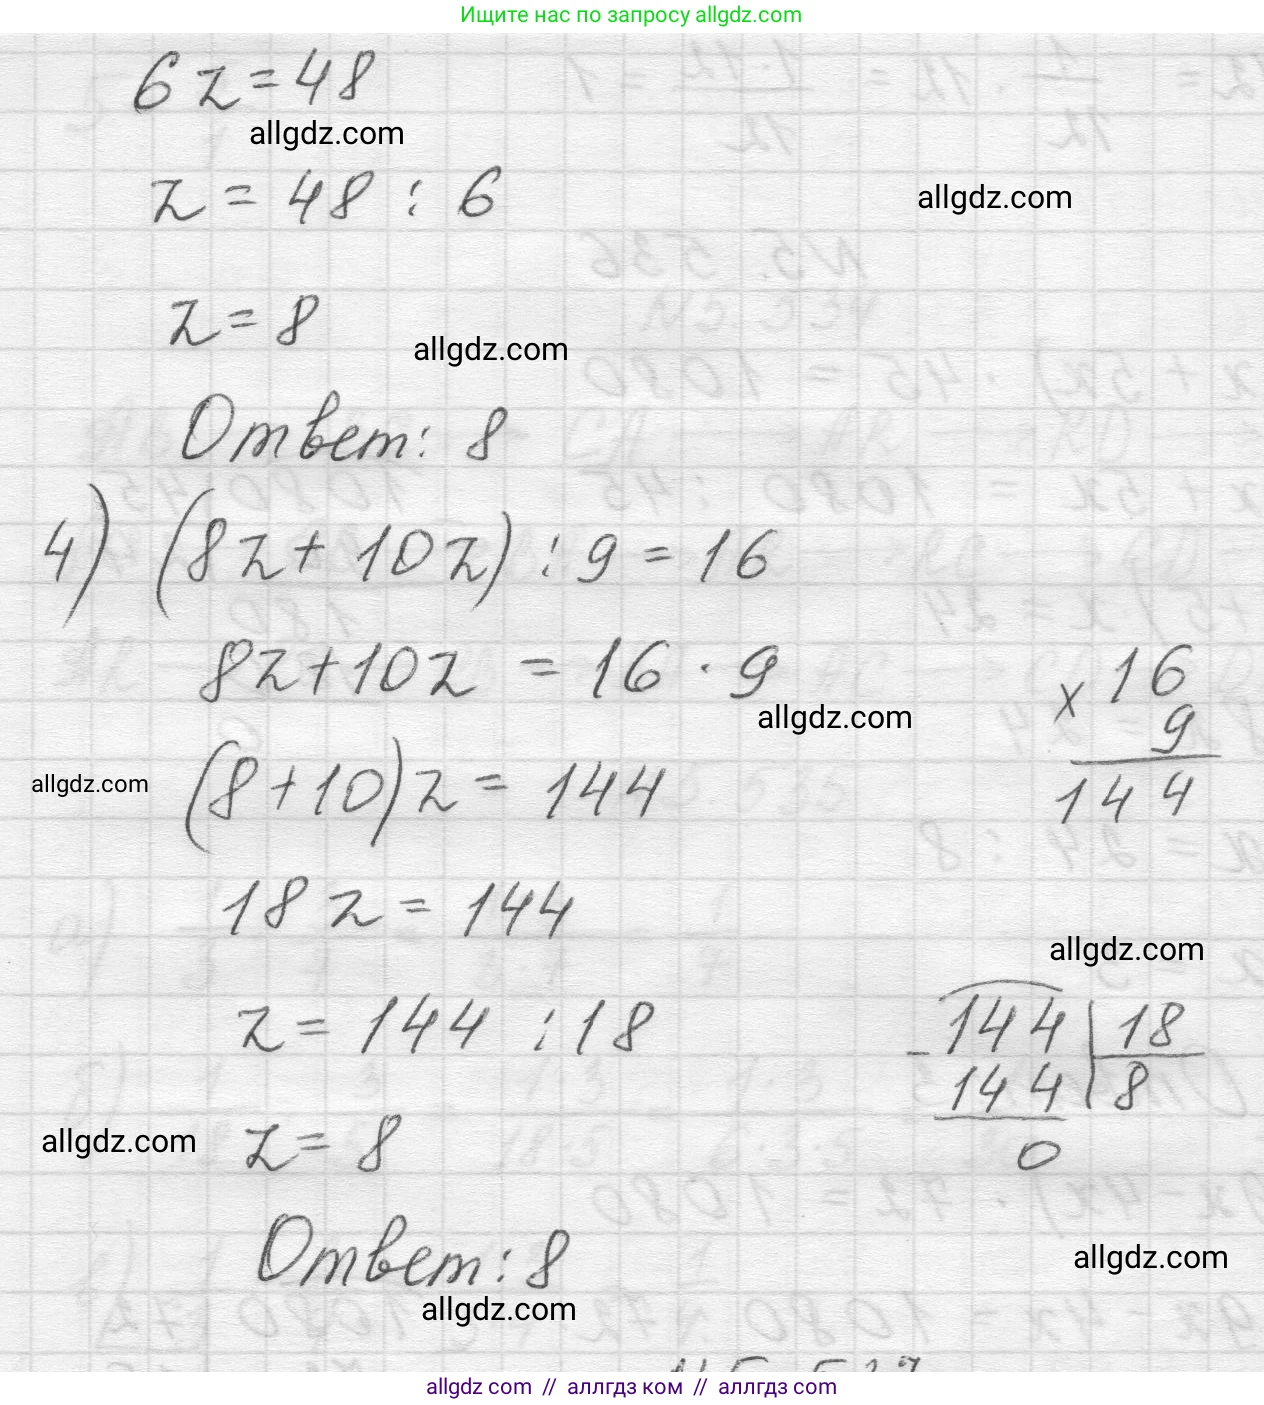 Ищите нас по запросу allgdz.com
6z = 48
allgdz.com
z = 48 : 6
allgdz.com
z = 8
allgdz.com
Ответ: 8
4) (8z + 10z) : 9 = 16
8z + 10z = 16 · 9
allgdz.com
× 16
9
144
allgdz.com
(8 + 10)z = 144
18z = 144
allgdz.com
z = 144 : 18
- 144 | 18
144 | 8
0
z = 8
allgdz.com
Ответ: 8
allgdz.com
allgdz.com
allgdz com // аллгдз ком // аллгдз com